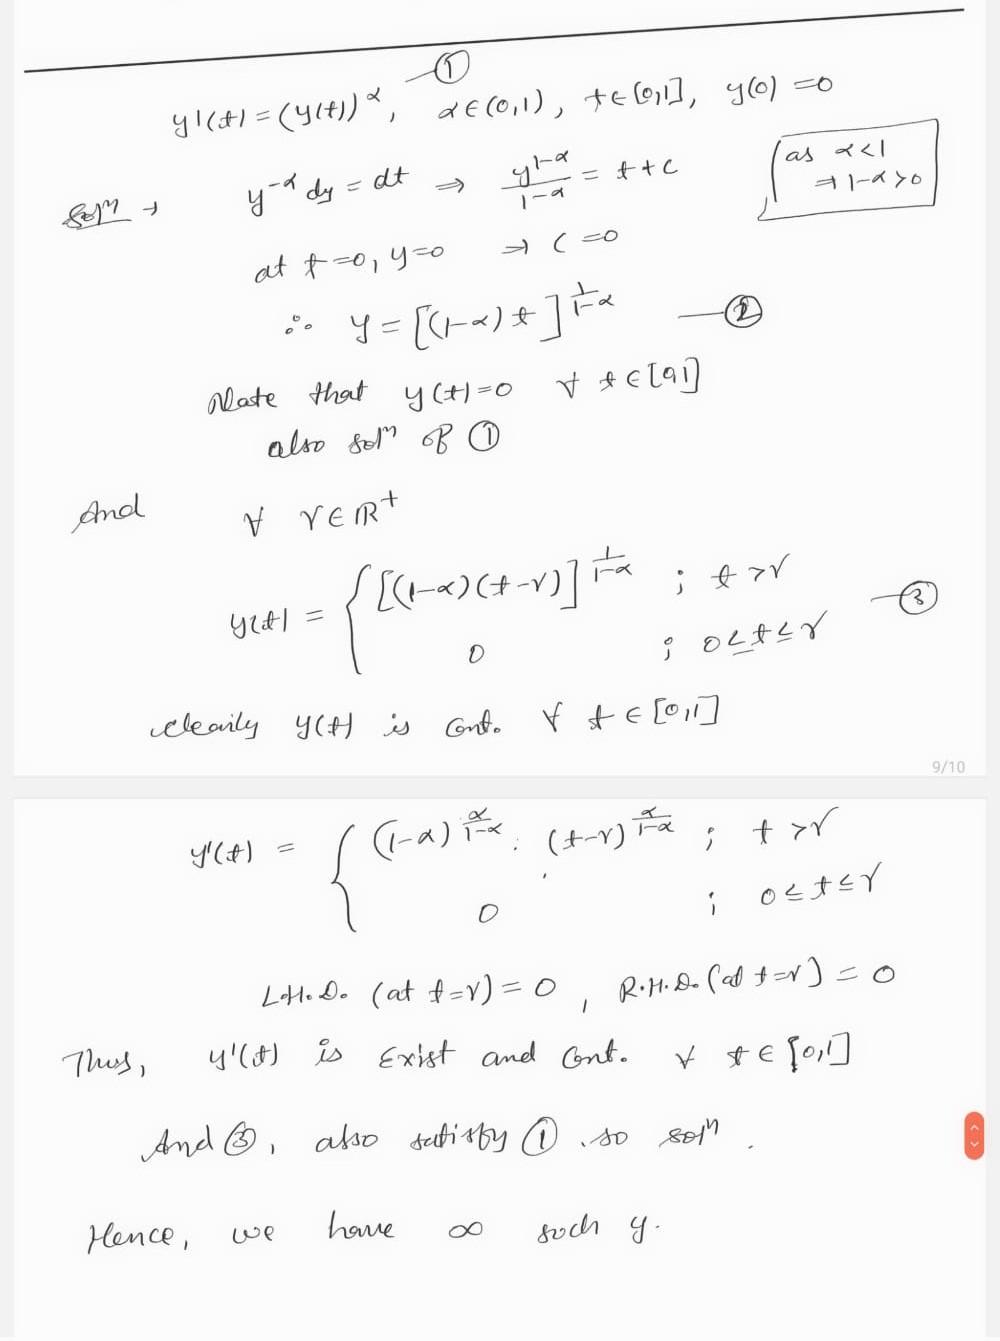 y'(t) = (y(t))^α, α∈(0,1), t∈[0,1], y(0)=0 —①
Solⁿ → y^{-α} dy = dt ⇒ y^{1-α}/(1-α) = t+c
as α<1
⇒ 1-α>0
at t=0, y=0 ⇒ C=0
∴ y = [(1-α)t]^{1/(1-α)} —②
Note that y(t)=0 ∀ t∈[0,1]
also solⁿ of ①
And ∀ γ∈ℝ⁺
y(t) = { [(1-α)(t-γ)]^{1/(1-α)} ; t>γ
0 ; 0≤t≤γ —③
clearily y(t) is cont. ∀ t∈[0,1]
9/10
y'(t) = { (1-α)^{α/(1-α)} . (t-γ)^{α/(1-α)} ; t>γ
0 ; 0≤t≤γ
L.H.D. (at t=γ) = 0, R.H.D. (at t=γ) = 0
Thus, y'(t) is Exist and Cont. ∀ t∈[0,1]
And ③, also satisfy ① . so solⁿ.
Hence, we have ∞ such y.